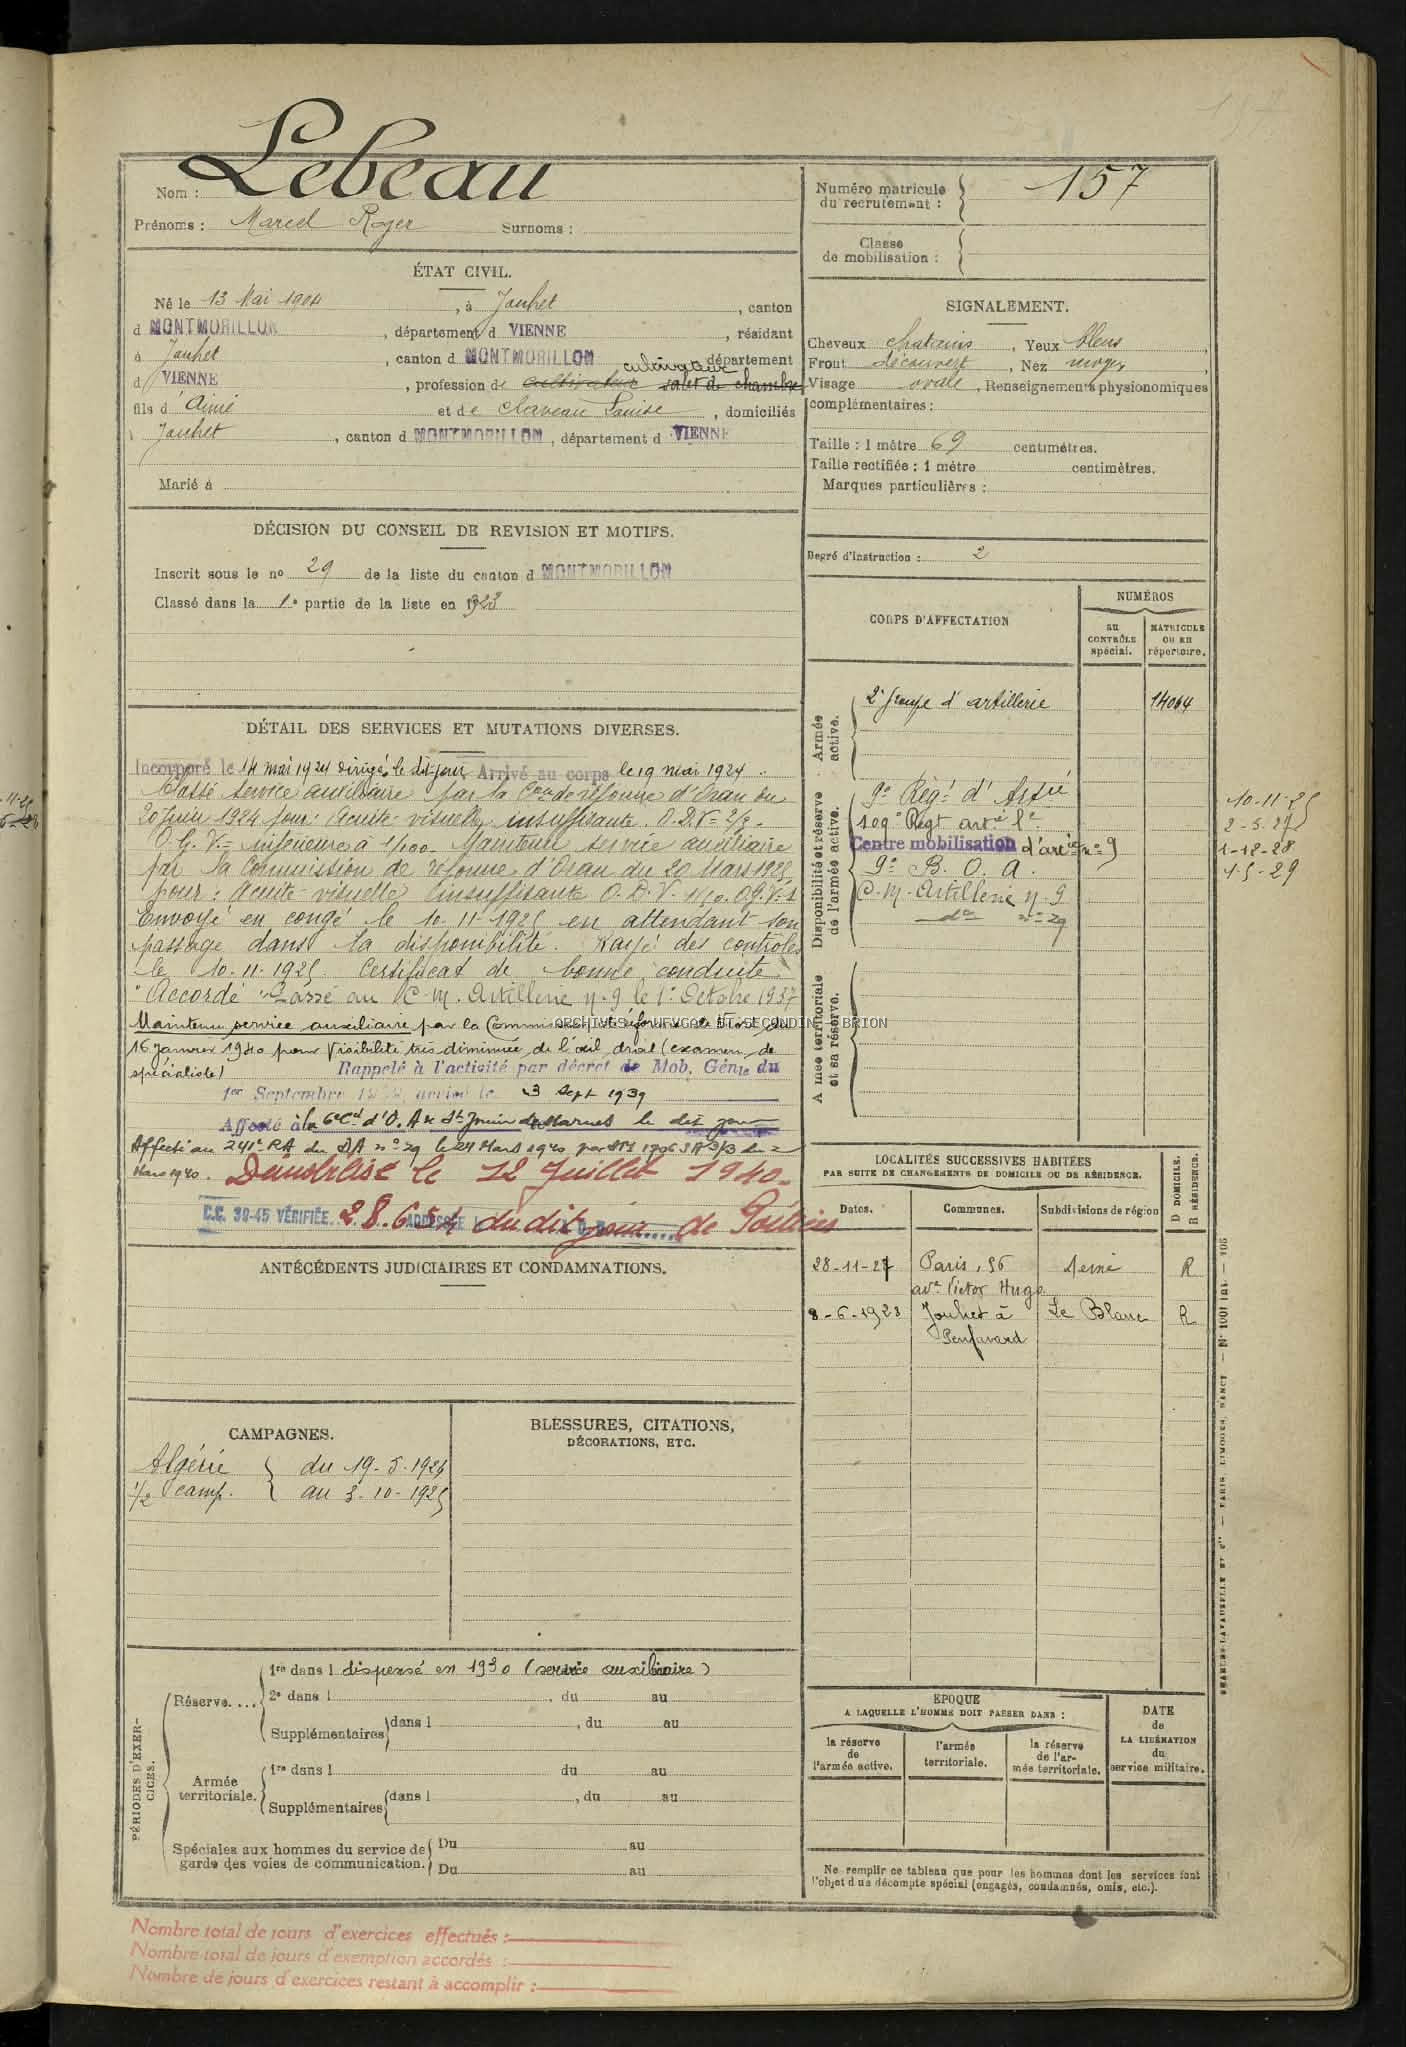 Nom : Lebeau
Prénoms : Marcel Roger Surnoms :
ÉTAT CIVIL.
Né le 13 Mai 1904, à Jouhet, canton
d MONTMORILLON, département d VIENNE, résidant
à Jouhet, canton d MONTMORILLON département
cultivateur
d VIENNE, profession de cultivateur valet de chambre
fils d'Aimé et de Claveau Louise, domiciliés
à Jouhet, canton d MONTMORILLON, département d VIENNE
Marié à
DÉCISION DU CONSEIL DE REVISION ET MOTIFS.
Inscrit sous le no 29 de la liste du canton d MONTMORILLON
Classé dans la 1e partie de la liste en 1923
DÉTAIL DES SERVICES ET MUTATIONS DIVERSES.
Incorporé le 14 mai 1924 dirigé le dit jour Arrivé au corps le 19 mai 1924.
Classé service auxiliaire par la Com de réforme d'Oran du
20 Juin 1924 pour : Acuité visuelle insuffisante. O.D.V = 2/3 -
O.G.V. = inférieure à 1/100. Maintenu service auxiliaire
par la Commission de réforme d'Oran du 20 Mars 1925
pour : Acuité visuelle insuffisante O.D.V. 1/50. O.G.V = 1
Envoyé en congé le 10-11-1925 en attendant son
passage dans la disponibilité. Rayé des contrôles
le 10.11.1925. Certificat de bonne conduite
"Accordé" Passé au C.M. Artillerie n. 9 le 1er Octobre 1937
Maintenu service auxiliaire par la Commission de réforme de du
16 Janvier 1940 pour Visibilité très diminuée de l'œil droit (examen de
spécialiste) Rappelé à l'activité par décret de Mob. Génle du
1er Septembre 1939 arrivé le 3 Sept 1939
Affecté à la 6e Cie d'O. A de St Jouin de Marnes le dit jour
Affecté au 241e RA du DA no 29 le 24 Mars 1940 par 1706 du 2
Mars 1940. Démobilisé le 12 Juillet 1940.
C.C. 39-45 VÉRIFIÉE. 28.654 du dit jour de Poitiers
ANTÉCÉDENTS JUDICIAIRES ET CONDAMNATIONS.
CAMPAGNES.
Algérie { du 19-5-1924
1/2 camp. { au 3-10-1925
BLESSURES, CITATIONS,
DÉCORATIONS, ETC.
PÉRIODES D'EXERCICES.
Réserve.... 1re dans l dispensé en 1930 (service auxiliaire)
2e dans l, du au
Supplémentaires dans l, du au
Armée territoriale. 1re dans l du au
Supplémentaires dans l, du au
Spéciales aux hommes du service de garde des voies de communication. Du au
Du au
Nombre total de jours d'exercices effectués :
Nombre total de jours d'exemption accordés :
Nombre de jours d'exercices restant à accomplir :
157
Numéro matricule
du recrutement : 157
Classe
de mobilisation :
SIGNALEMENT.
Cheveux chatains, Yeux bleus,
Front découvert, Nez moyen,
Visage ovale, Renseignements physionomiques
complémentaires :
Taille : 1 mètre 69 centimètres.
Taille rectifiée : 1 mètre centimètres.
Marques particulières :
Degré d'instruction : 2
CORPS D'AFFECTATION
NUMÉROS
au CONTRÔLE spécial.
MATRICULE OU AU répertoire.
Armée active.
2e Groupe d'artillerie 14064
Disponibilité et réserve de l'armée active.
9e Régt d'Artrie 10-11-25
109e Régt artie Lde 2-5-27
Centre mobilisation d'artie no 9 1-12-28
9e B. O. A. 1-5-29
C.M. Artillerie n. 9
do no 29
Armée territoriale et sa réserve.
LOCALITÉS SUCCESSIVES HABITÉES
PAR SUITE DE CHANGEMENTS DE DOMICILE OU DE RÉSIDENCE.
D DOMICILE.
R RÉSIDENCE.
Dates. Communes. Subdivisions de région
28-11-27 Paris, 56 Seine R
ave Victor Hugo
8-6-1928 Jouhet à Le Blanc R
Penfavard
EPOQUE
A LAQUELLE L'HOMME DOIT PASSER DANS :
la réserve de l'armée active.
l'armée territoriale.
la réserve de l'armée territoriale.
DATE de LA LIBÉRATION du service militaire.
Ne remplir ce tableau que pour les hommes dont les services font
l'objet d'un décompte spécial (engagés, condamnés, omis, etc.).
CHARLES-LAVAUZELLE ET Cie — PARIS, LIMOGES, NANCY